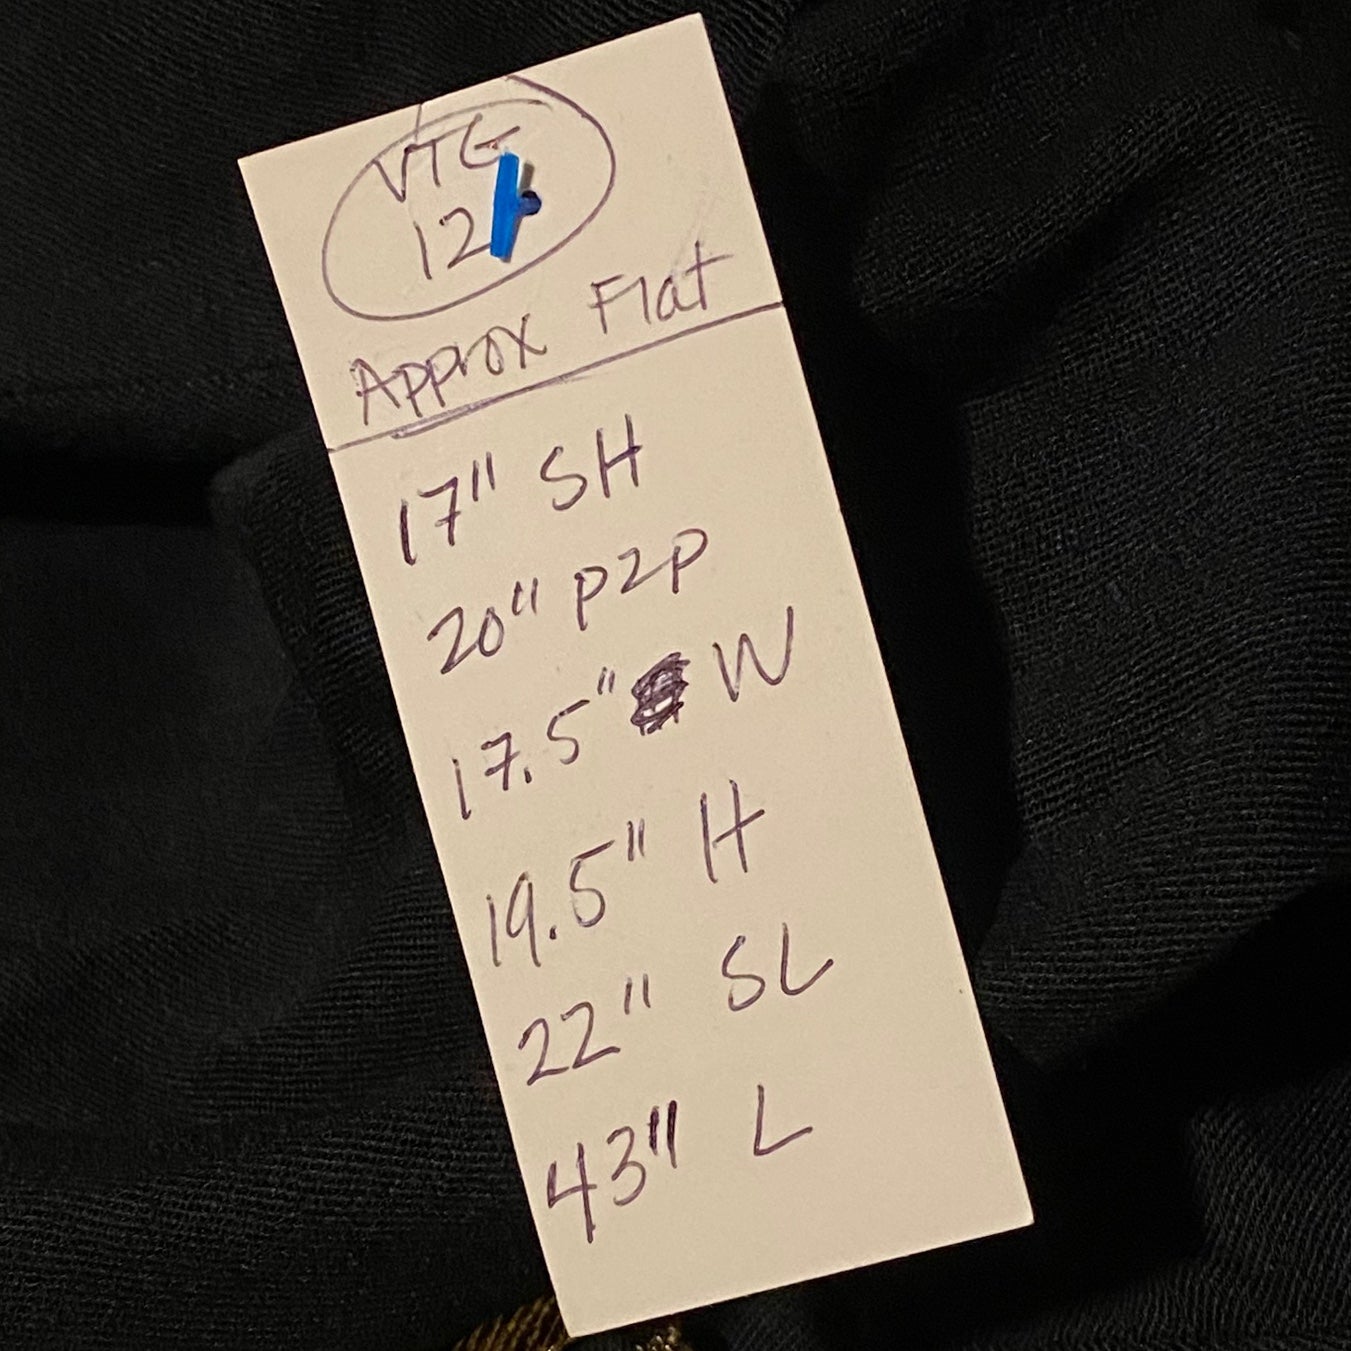 VTG
12
Approx Flat
17" SH
20" P2P
17.5" W
19.5" H
22" SL
43" L